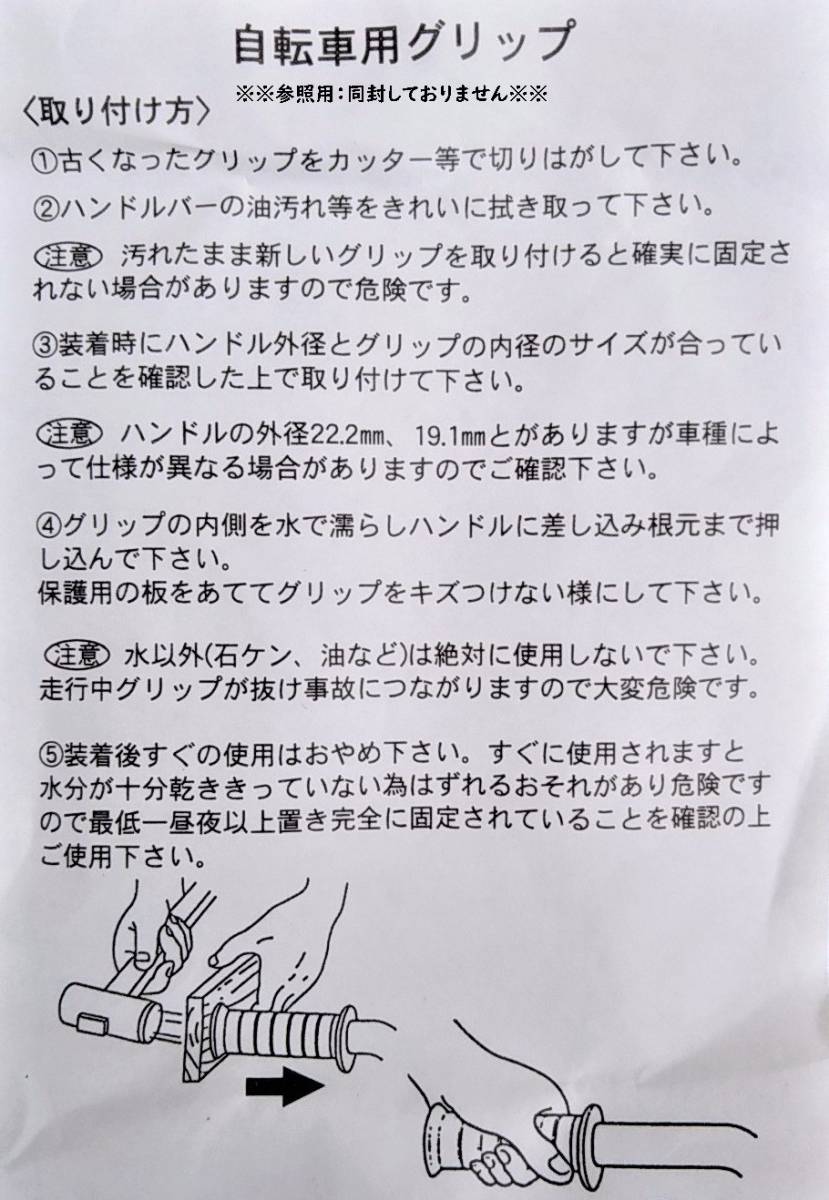 自転車用グリップ
※※参照用：同封しておりません※※
〈取り付け方〉
①古くなったグリップをカッター等で切りはがして下さい。
②ハンドルバーの油汚れ等をきれいに拭き取って下さい。
注意 汚れたまま新しいグリップを取り付けると確実に固定さ
れない場合がありますので危険です。
③装着時にハンドル外径とグリップの内径のサイズが合ってい
ることを確認した上で取り付けて下さい。
注意 ハンドルの外径22.2㎜、19.1㎜とがありますが車種によ
って仕様が異なる場合がありますのでご確認下さい。
④グリップの内側を水で濡らしハンドルに差し込み根元まで押
し込んで下さい。
保護用の板をあててグリップをキズつけない様にして下さい。
注意 水以外(石ケン、油など)は絶対に使用しないで下さい。
走行中グリップが抜け事故につながりますので大変危険です。
⑤装着後すぐの使用はおやめ下さい。すぐに使用されますと
水分が十分乾ききっていない為はずれるおそれがあり危険です
ので最低一昼夜以上置き完全に固定されていることを確認の上
ご使用下さい。